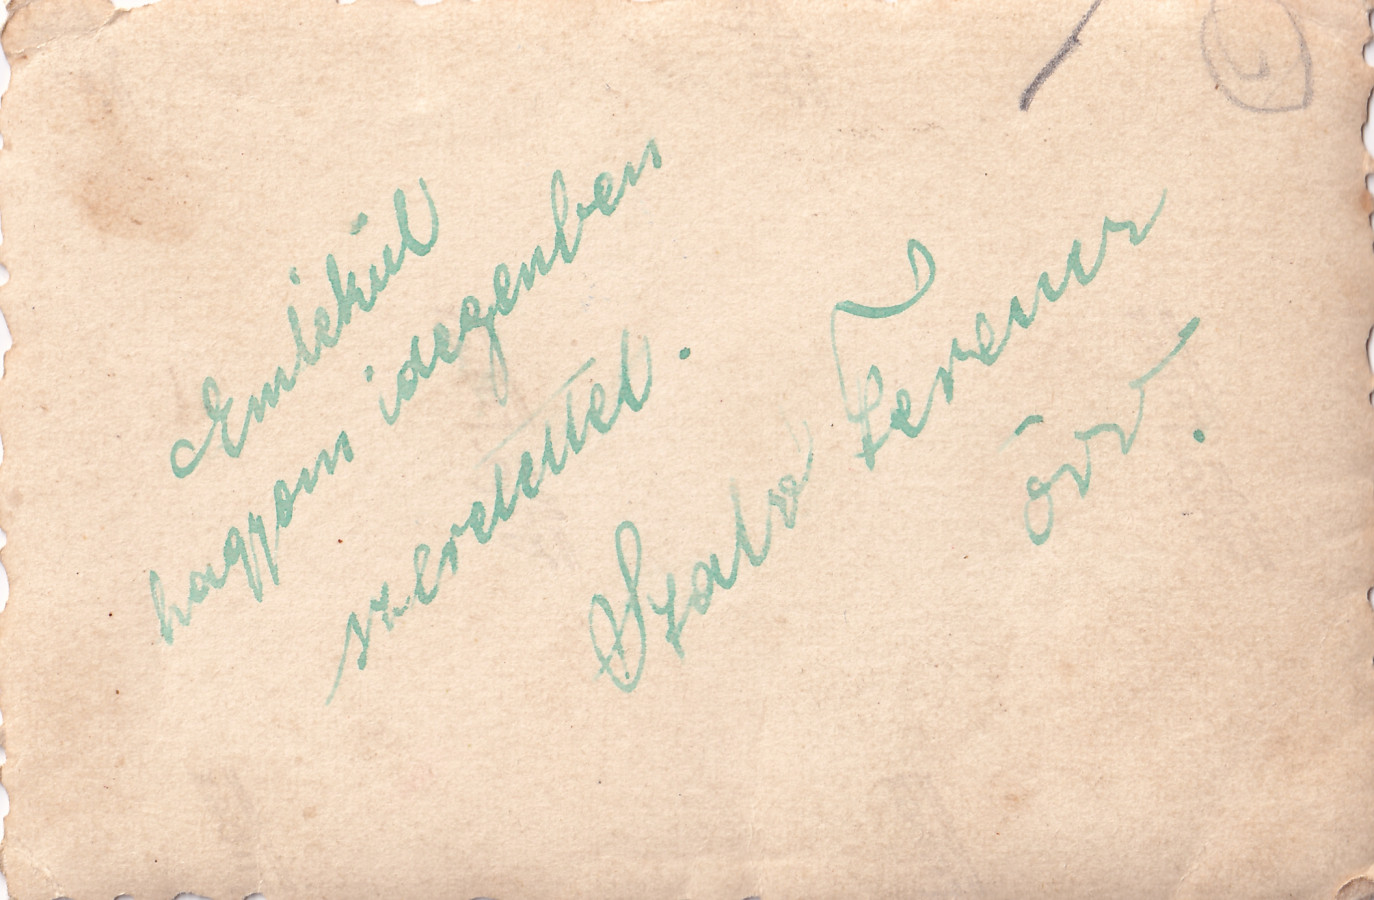 Emlékül
hagyom idegenben
szeretettel.
Szabó Ferenc
őrv.